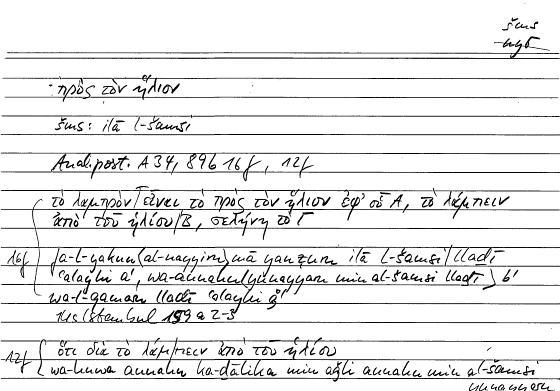 šms
πρὸς τὸν ἥλιον
šms: ilā l-šamsi
Anal. post. A 34, 89b 16f, 12f
τὸ λαμπρὸν/εἶναι τὸ πρὸς τὸν ἥλιον ἐφ' οὗ Α, τὸ λάμπειν
ἀπὸ τοῦ ἡλίου/Β, σελήνη τὸ Γ
16f fa-l-yakun (al-nayyiru) mā yanẓuru ilā l-šamsi/lladī
ʿalayhi a', wa-annahu/yunayyaru min al-šamsi lladī b'
wa-l-qamaru lladī ʿalayhi ǧ'
Hs Istanbul 199 a 2-3
12f ὅτι διὰ τὸ λάμ/πειν ἀπὸ τοῦ ἡλίου
wa-huwa annahu ka-ḏālika min aǧli annahu min al-šamsi